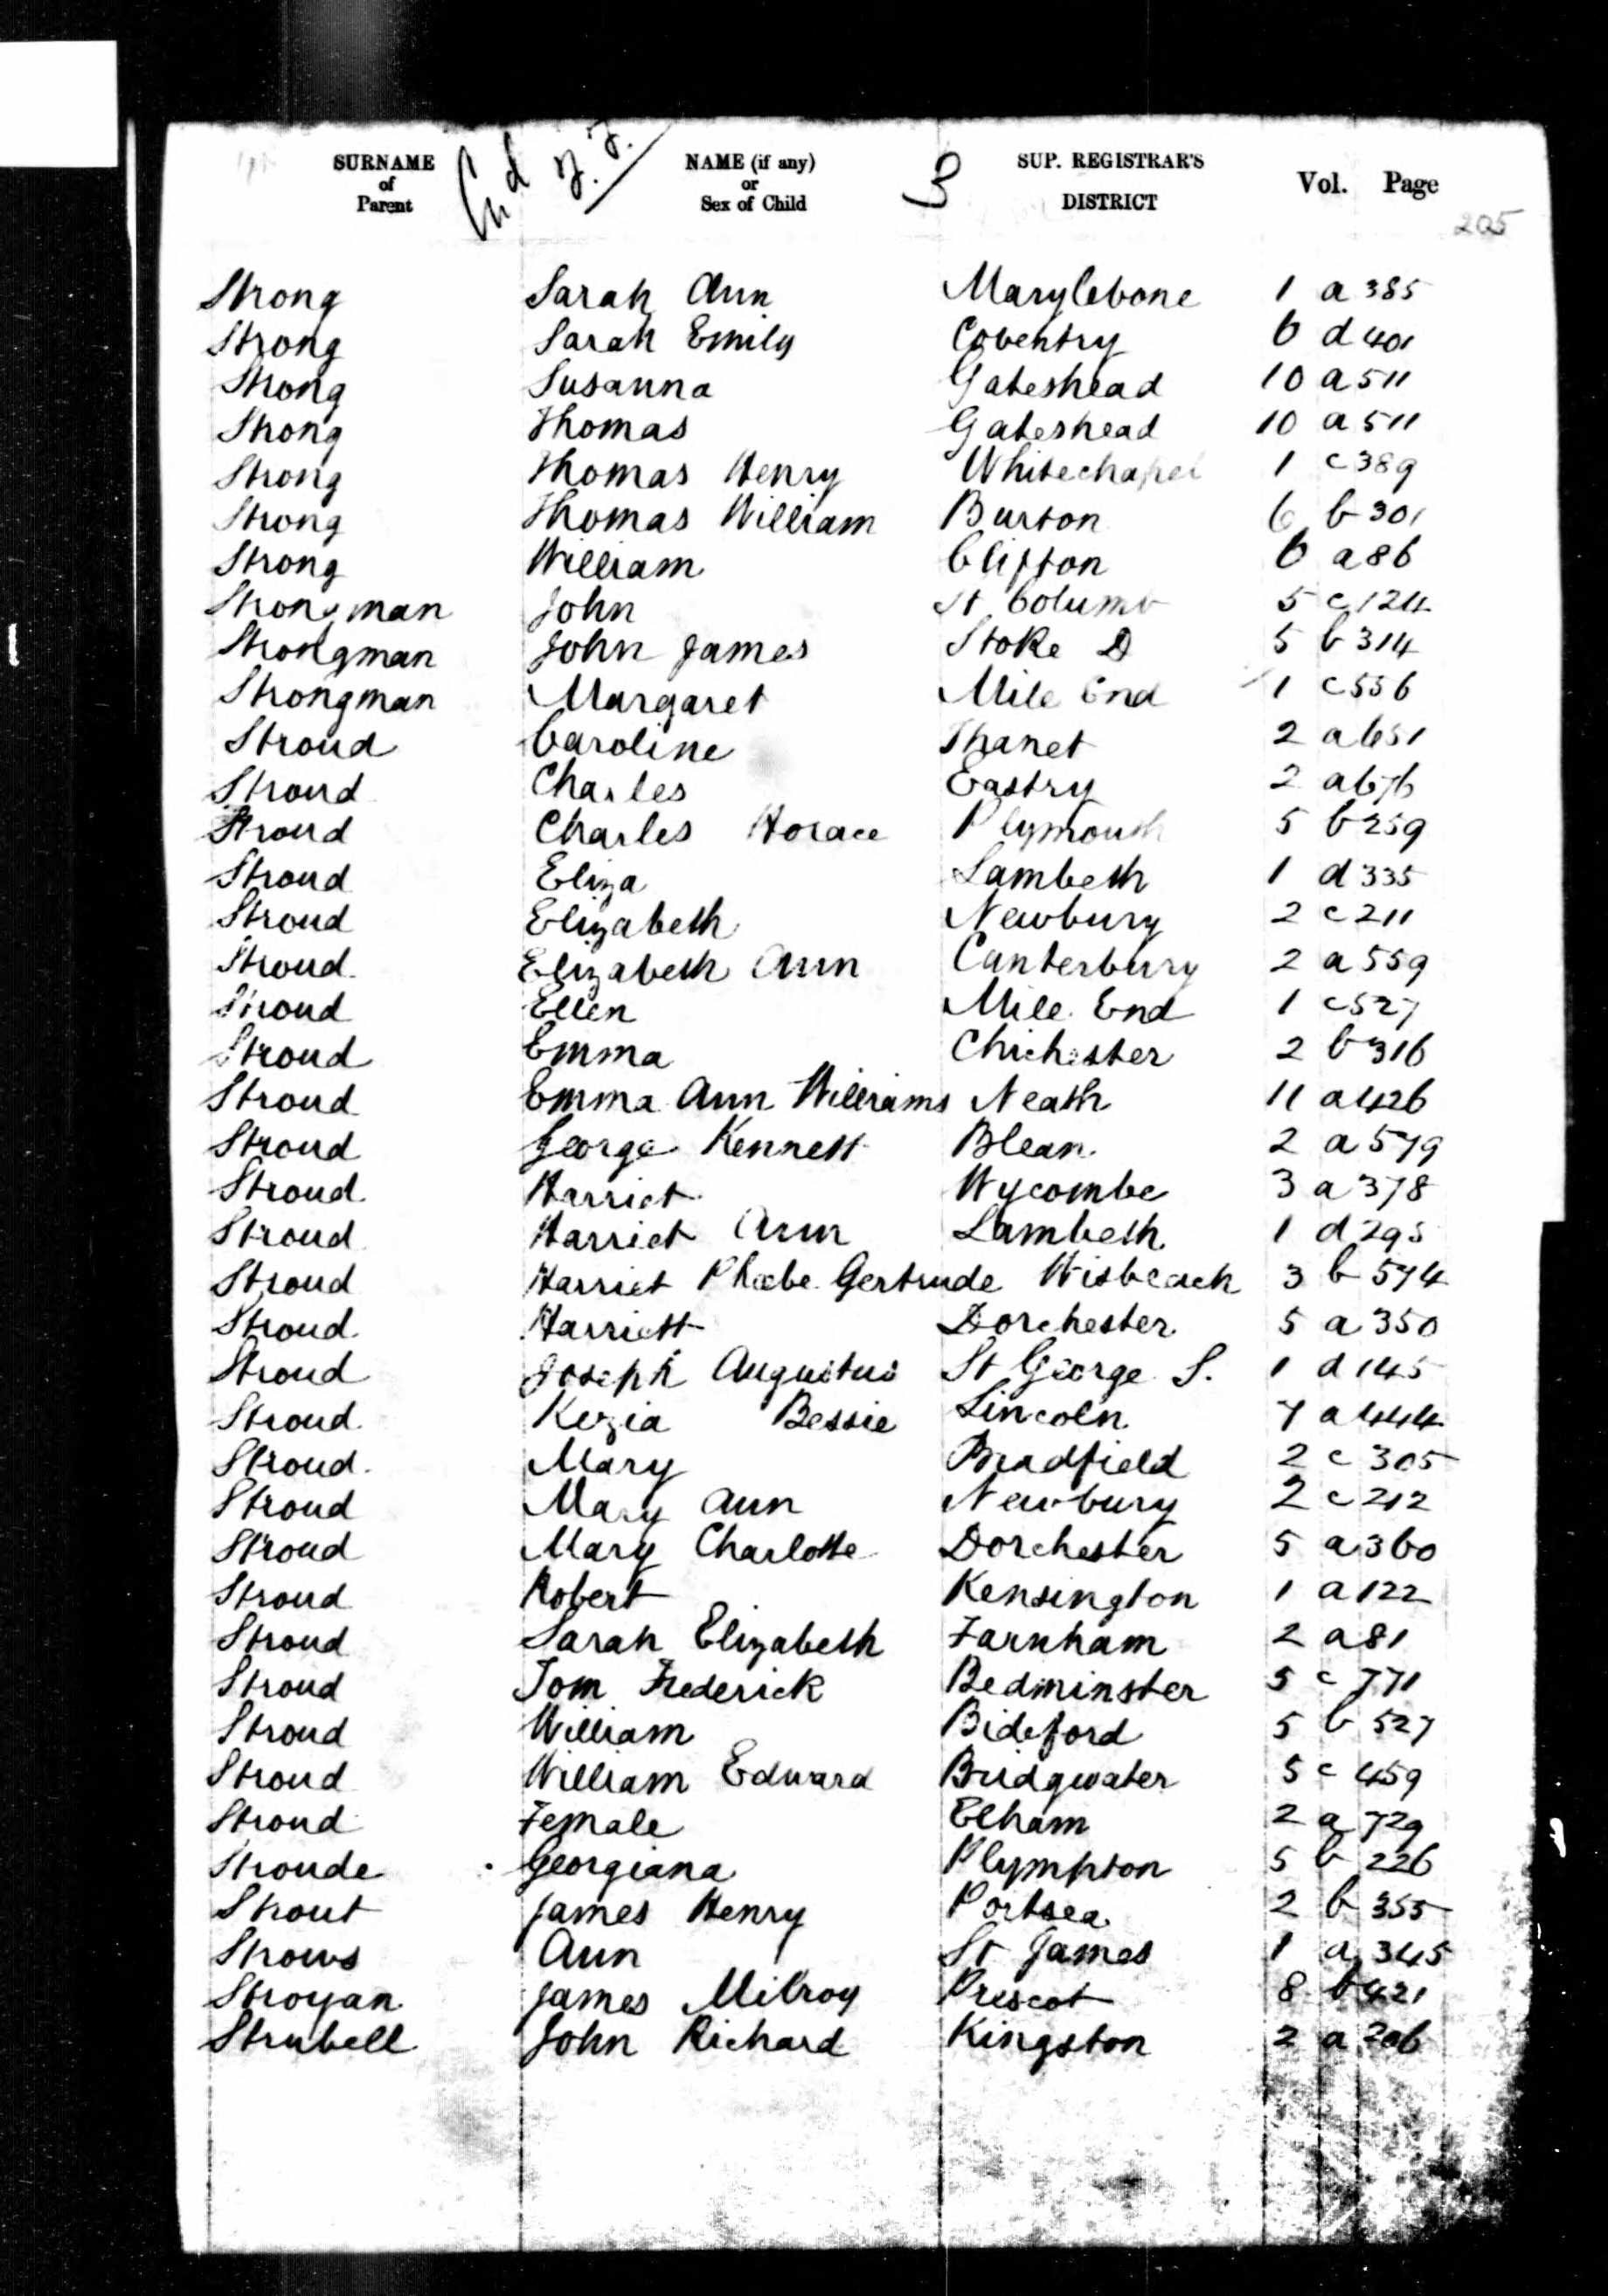 SURNAME of Parent NAME (if any) or Sex of Child 3 SUP. REGISTRAR'S DISTRICT Vol. Page
205
Strong Sarah Ann Marylebone 1 a 385
Strong Sarah Emily Coventry 6 d 401
Strong Susanna Gateshead 10 a 511
Strong Thomas Gateshead 10 a 511
Strong Thomas Henry Whitechapel 1 c 389
Strong Thomas William Burton 6 b 301
Strong William Clifton 6 a 86
Strongman John St Columb 5 c 124
Strongman John James Stoke D 5 b 314
Strongman Margaret Mile End 1 c 556
Stroud Caroline Thanet 2 a 651
Stroud Charles Eastry 2 a 676
Stroud Charles Horace Plymouth 5 b 259
Stroud Eliza Lambeth 1 d 335
Stroud Elizabeth Newbury 2 c 211
Stroud Elizabeth Ann Canterbury 2 a 559
Stroud Ellen Mile End 1 c 527
Stroud Emma Chichester 2 b 316
Stroud Emma Ann Williams Neath 11 a 426
Stroud George Kennett Blean 2 a 579
Stroud Harriet Wycombe 3 a 378
Stroud Harriet Ann Lambeth 1 d 295
Stroud Harriet Phœbe Gertrude Wisbeach 3 b 574
Stroud Harriett Dorchester 5 a 350
Stroud Joseph Augustus St George S. 1 d 145
Stroud Kezia Bessie Lincoln 7 a 444
Stroud Mary Bradfield 2 c 305
Stroud Mary Ann Newbury 2 c 212
Stroud Mary Charlotte Dorchester 5 a 360
Stroud Robert Kensington 1 a 122
Stroud Sarah Elizabeth Farnham 2 a 81
Stroud Tom Frederick Bedminster 5 c 771
Stroud William Bideford 5 b 527
Stroud William Edward Bridgwater 5 c 459
Stroud Female Elham 2 a 729
Stroude Georgiana Plympton 5 b 226
Strout James Henry Portsea 2 b 355
Strows Ann St James 1 a 345
Stroyan James Milroy Prescot 8 b 421
Strubell John Richard Kingston 2 a 206